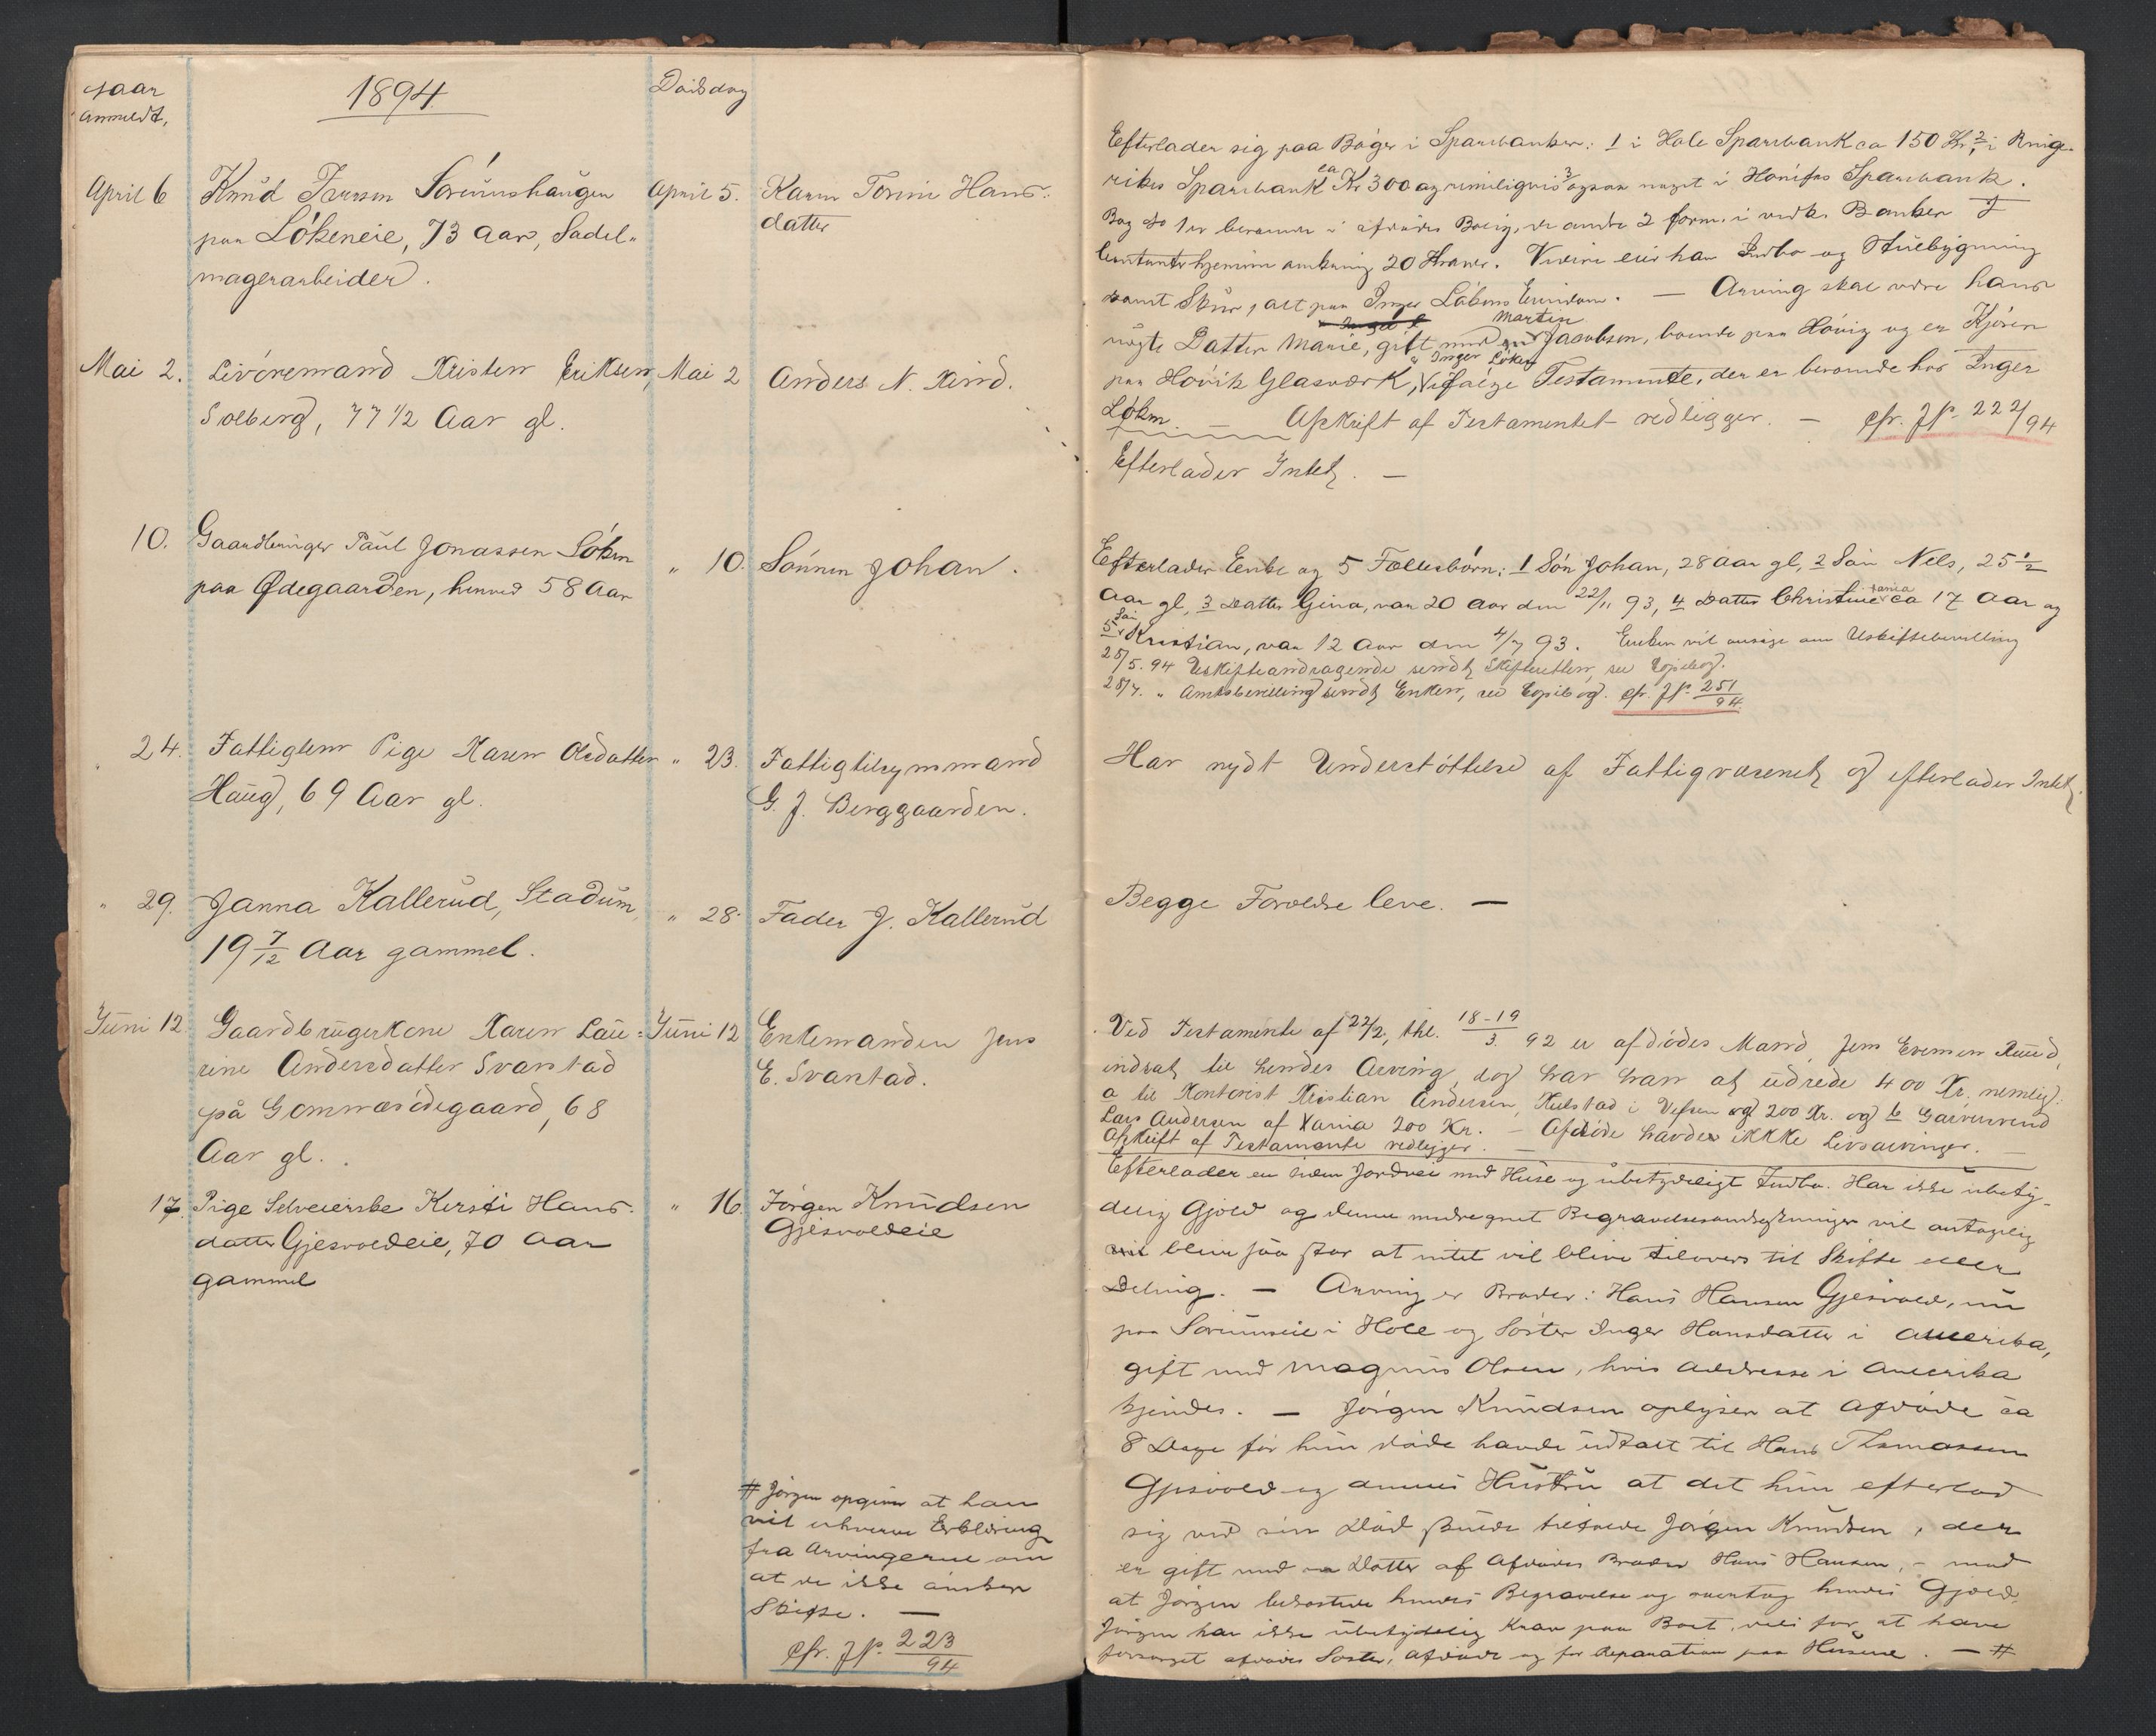 naar
anmeldt,
1894
Dødsdag
April 6
Knud Iversen Sørumshaugen
paa Lökeneie, 73 Aar, Sadel-
magerarbeider.
April 5.
Karen Torine Hans-
datter
Mai 2.
Livöremand Kristen Eriksen
Solberg, 77 1/2 Aar gl.
Mai 2
Anders N. Rud.
10.
Gaardbruger Paul Jonassen Löken
paa Ødegaarden, henved 58 Aar
" 10.
Sönnen Johan.
24.
Fattiglem Pige Karen Olsdatter
Haug, 69 Aar gl.
" 23.
Fattigtilsynsmand
G. J. Berggaarden.
" 29.
Janna Kallerud, Stadum,
19 7/12 Aar gammel.
" 28.
Fader J. Kallerud
Juni 12
Gaardbrugerkone Karen Lau-
rine Andersdatter Svarstad
på Gomnæsödegaard, 68
Aar gl.
Juni 12
Enkemanden Jens
E. Svarstad.
17.
Pige Selveierske Kersti Hans-
datter Gjesvoldeie, 70 Aar
gammel
" 16.
Jörgen Knudsen
Gjesvoldeie
# Jörgen opgiver at han
vil erhverve Erklæring
fra Arvingerne om
at de ikke önsker
Skifte. —
cfr. Jr. 223/94
Efterlader sig paa Böger i Sparebanker: 1 i Hole Sparebank ca 150 Kr, 2 i Ringe-
rikes Sparebank ca Kr 300 og rimeligvis 3 ogsaa noget i Hönefos Sparebank.
Bog No 1 er beroende i afdödes Bolig, de andre 2 form. i vedk. Banker
kontanter hjemme omkring 20 Kroner. Videre eier han Indbo og Stuebygning
samt Skur, alt paa Inger Lökens Eiendom. — Arving skal være hans
uægte Datter Marie, gift med Martin Jacobsen, boende paa Hövig og er Kjörer
paa Hövik Glasværk, & Inger Löken ifölge Testamente, der er beroende hos Inger
Löken. — Afskrift af Testamentet vedligger. — cfr. Jr. 222/94
Efterlader Intet. —
Efterlader Enke og 5 Fællesbörn: 1 Sön Johan, 28 Aar gl, 2 Sön Nels, 25 1/2
Aar gl, 3 Datter Gina, var 20 Aar den 22/11 93, 4 Datter Christiania ca 17 Aar og
5 Sön Kristian, var 12 Aar den 4/7 93. Enken vil ansöge om Uskiftebevilling
25/5. 94 Uskifteandragende sendt Skifteretten, se Copibog.
28/7. " Amtsbevilling sendt Enken, se Copibog. cfr. Jr. 251/94
Har nydt Understöttelse af Fattigvæsenet og efterlader Intet.
Begge Forældre leve. —
Ved Testamente af 22/2, thl. 18-19/3. 92 er afdödes Mand, Jens Evensen Ruud,
indsat til hendes Arving, dog har han at udrede 400 Kr. nemlig:
a til Kontorist Kristian Andersen, Kulstad i Vefsen 200 Kr. og b Garversvend
Lars Andersen af Xania 200 Kr. — Afdöde havde ikke Livsarvinger. —
Afskrift af Testamente vedligger. —
Efterlader en liden Jordvei med Huse og ubetydeligt Indbo. Har ikke ubety-
delig Gjæld og denne medregnet Begravelsesomkostninger vil antagelig
blive saa stor at intet vil blive tilovers til Skifte eller
Deling. — Arving er Broder: Hans Hansen Gjesvold, nu
paa Sörumseie i Hole og Söster Inger Hansdatter i Amerika,
gift med Magnus Olsen, hvis Addresse i Amerika
kjendes. — Jörgen Knudsen oplyser at Afdöde ca
8 Dage för hun döde havde udtalt til Hans Thomassen
Gjesvold og dennes Hustru at det hun efterlod
sig ved sin Död skulde tilfalde Jörgen Knudsen, der
er gift med en Datter af Afdödes Broder Hans Hansen, - mod
at Jörgen bekostede hendes Begravelse og overtog hendes Gjæld.
Jörgen har ikke ubetydelig Krav paa Boet, dels for at have
forsörget afdödes Söster, Afdöde og for Reparation paa Husene. — #